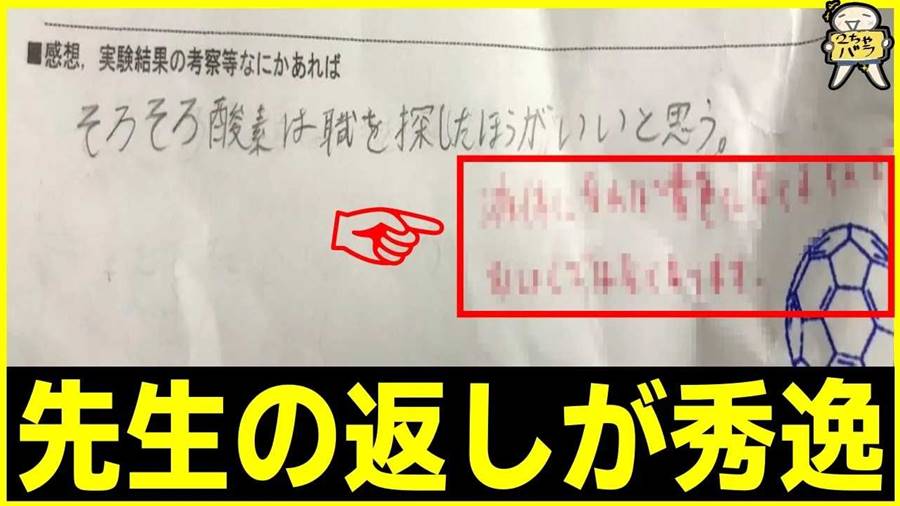 2ちゃ
バラ
■感想,実験結果の考察等なにかあれば
そろそろ酸素は職を探したほうがいいと思う。
先生の返しが秀逸